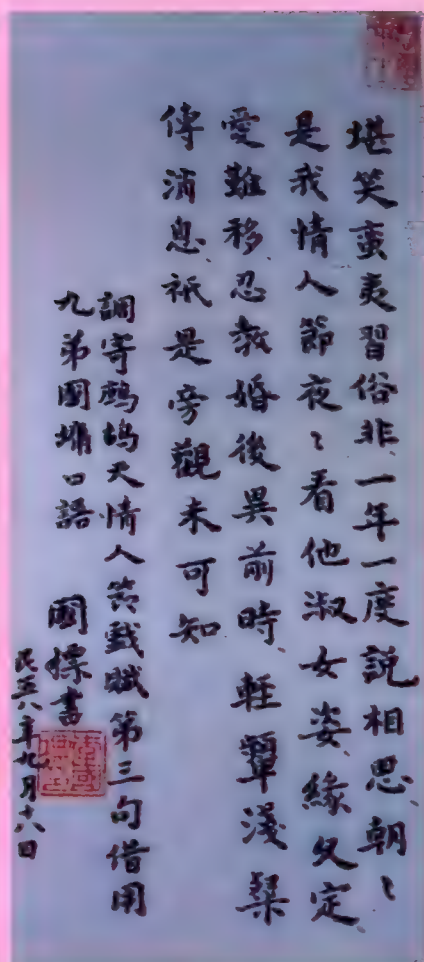 堪笑蛮夷習俗非、一年一度說相思、朝〻
是我情人節夜〻看他淑女姿、緣久定、
愛難移、忍教婚後異前時、輕顰淺粲
傳消息、祇是旁觀未可知
調寄鷓鴣天情人節戲賦第三句借用
九弟國墉口語 國標書
民五八年九月十八日